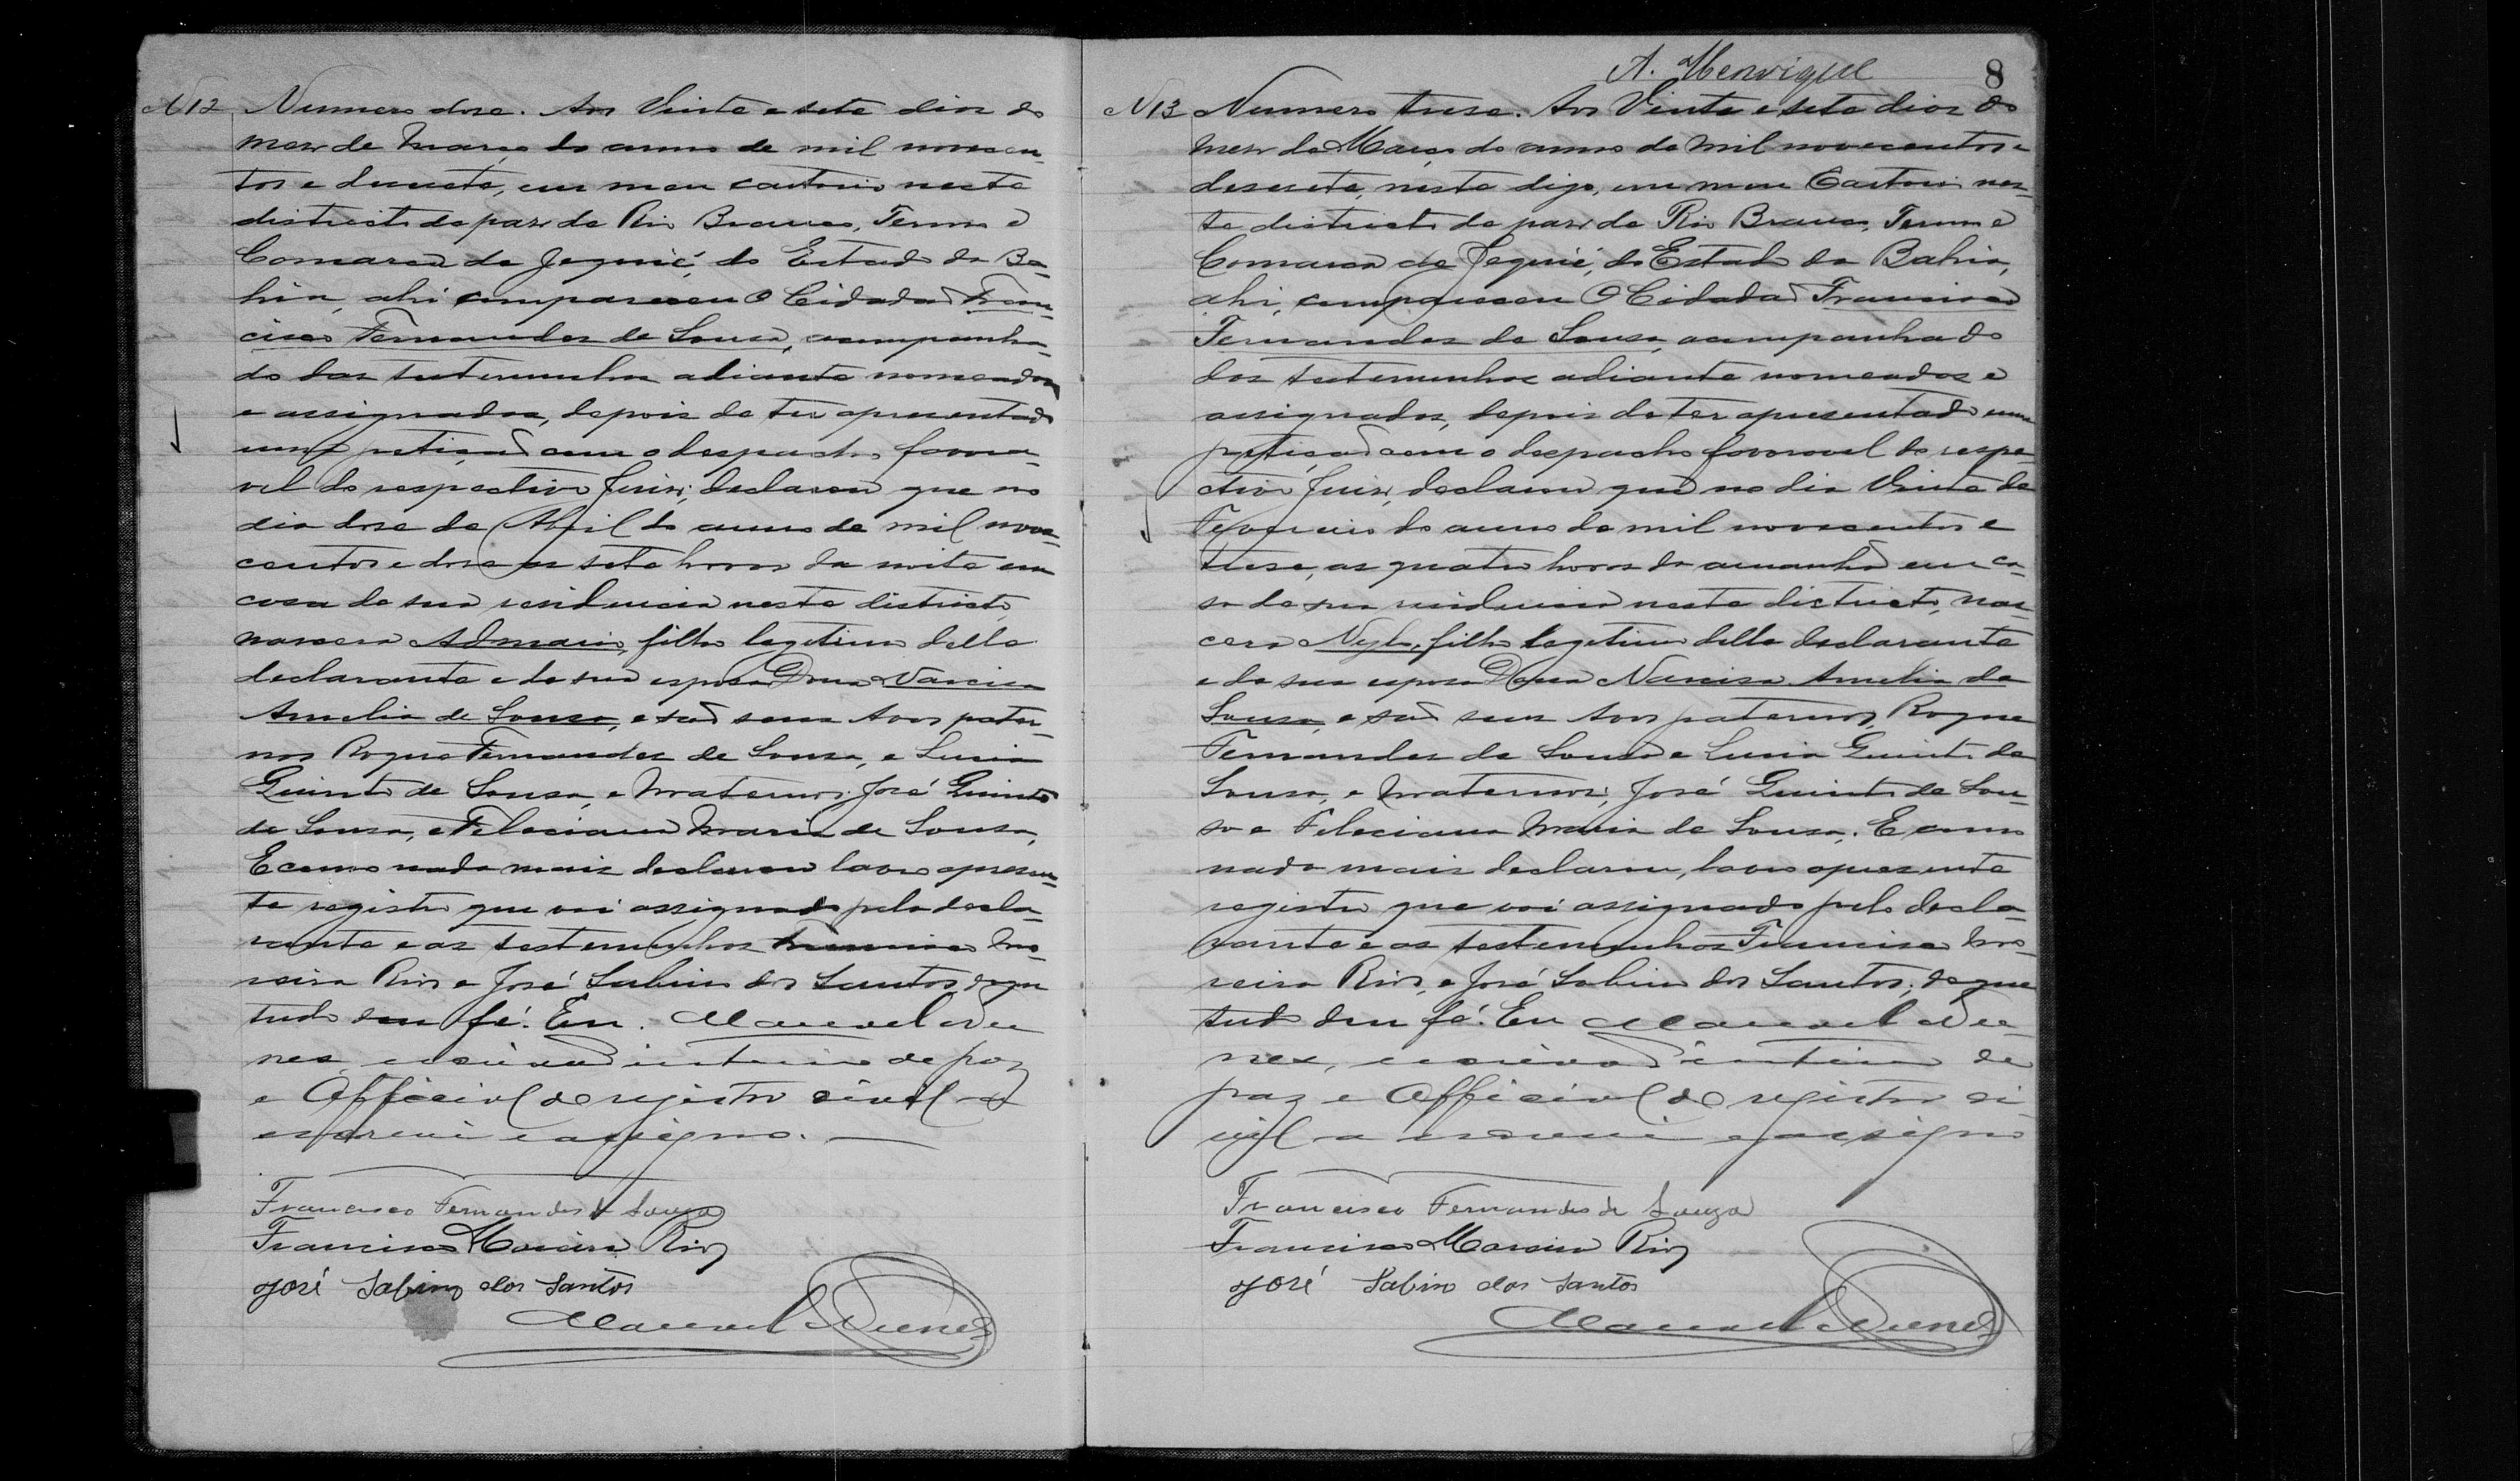 N 12 Numero dose. Aos Vinte e sete dias do
mez de Março do anno de mil novecen-
tos e desesete, em meu cartorio neste
districto de paz de Rio Branco, Termo e
Comarca de Jequié, do Estado da Ba-
hia, ahi compareceu o Cidadaõ Fran-
cisco Fernandes de Sousa, acompanha-
do das testemunhas adiante nomeadas
e assignadas, depois de ter apresentado
uma petiçaõ com o despacho favora-
vel do respectivo Juiz, declarou que no
dia dose de Abril do anno de mil nove-
centos e dose as sete horas da noite em
casa de sua residencia neste districto,
nascera Admario, filho legitimo delle
declarante e de sua esposa Dona Narcisa
Amelia de Sousa, e saõ seus Avos pater-
nos Roque Fernandes de Sousa, e Lusia
Quinto de Sousa, e Maternos, José Quinto
de Sousa, e Feleciana Maria de Sousa,
E como nada mais declarou lavro apresen-
te registro que vai assignado pelo decla-
rante e as testemunhas Francisco Mo-
reira Rios e José Sabino dos Santos, de que
tudo dou fé. Eu. Manoel Nu
nes, escrivaõ interino de paz
e Official do registro civil o
escrevi e assigno.
Francisco Fernandes de Souza
Francisco Moreira Rios
José Sabino dos Santos
Manoel Nunes
A. Henrique
8
N 13 Numero trese. Aos Vinte e sete dias do
mez de Março do anno de mil novecentos e
desesete, neste digo, em meu Cartorio nes-
te districto de paz de Rio Branco, Termo e
Comarca de Jequié, do Estado da Bahia,
ahi, compareceu o Cidadaõ Francisco
Fernandes de Sousa, acompanhado
das testemunhas adiante nomeadas e
assignadas, depois de ter apresentado uma
petiçaõ com o despacho favoravel do respe-
ctivo Juiz, declarou que no dia Vinte de
Fevereiro do anno de mil novecentos e
trese, as quatro horas da amanhã em ca-
sa de sua residencia neste districto, nas-
cera Nylo, filho legitimo delle declarante
e de sua esposa Dona Narcisa Amelia de
Sousa, e saõ seus Avos paternos, Roque
Fernandes de Sousa e Lusia Quinto de
Sousa, e Maternos, José Quinto de Sou-
sa e Feleciana Maria de Sousa. E como
nada mais declarou, lavro apresente
registro que vai assignado pelo decla-
rante e as testemunhas Francisco Mo-
reira Rios, e José Sabino dos Santos, de que
tudo dou fé. Eu Manoel Nu-
nes, escrivaõ interino de
paz e Official do registro ci-
vil o escrevi e assigno
Francisco Fernandes de Souza
Francisco Moreira Rios
José Sabino dos Santos
Manoel Nunes